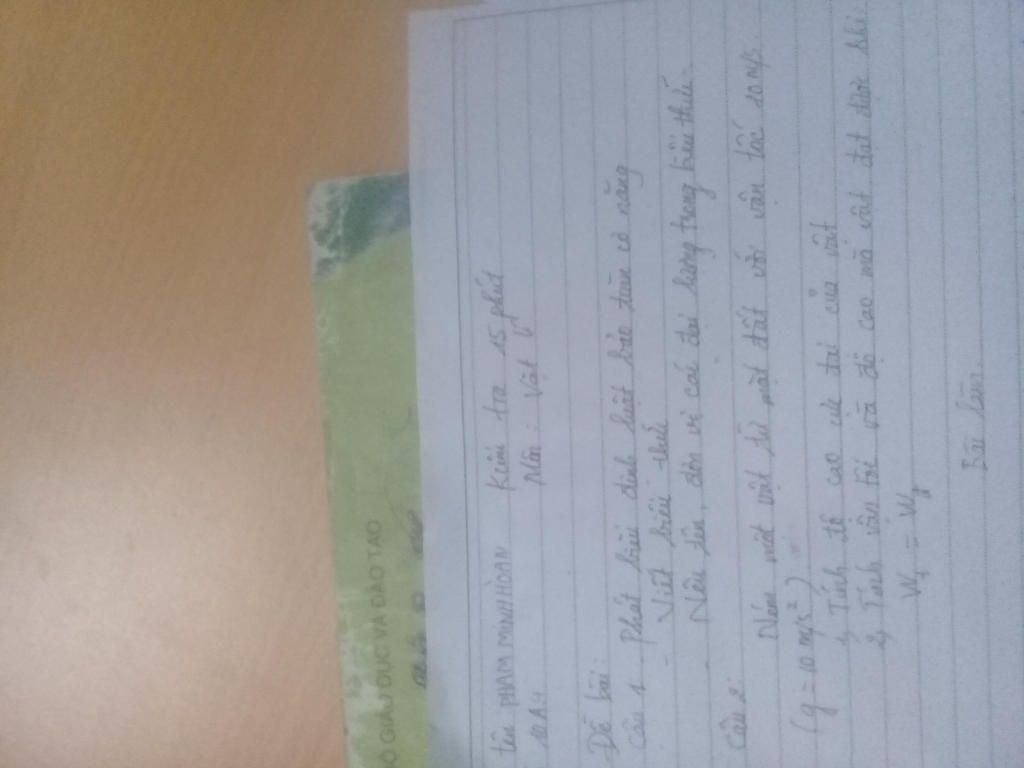 BỘ GIÁO DỤC VÀ ĐÀO TẠO
tên PHẠM MINH HOAN Kiểm tra 15 phút
10A4 Môn : Vật lý
Đề bài:
Câu 1. Phát biểu định luật bảo toàn cơ năng
- Viết biểu thức
- Nêu tên, đơn vị các đại lượng trong biểu thức.
Câu 2:
Ném một vật từ mặt đất với vận tốc 10 m/s
(g = 10 m/s²)
1, Tính độ cao cực đại của vật
2, Tính vận tốc và độ cao mà vật đạt được khi
Wt = Wđ
Bài làm.